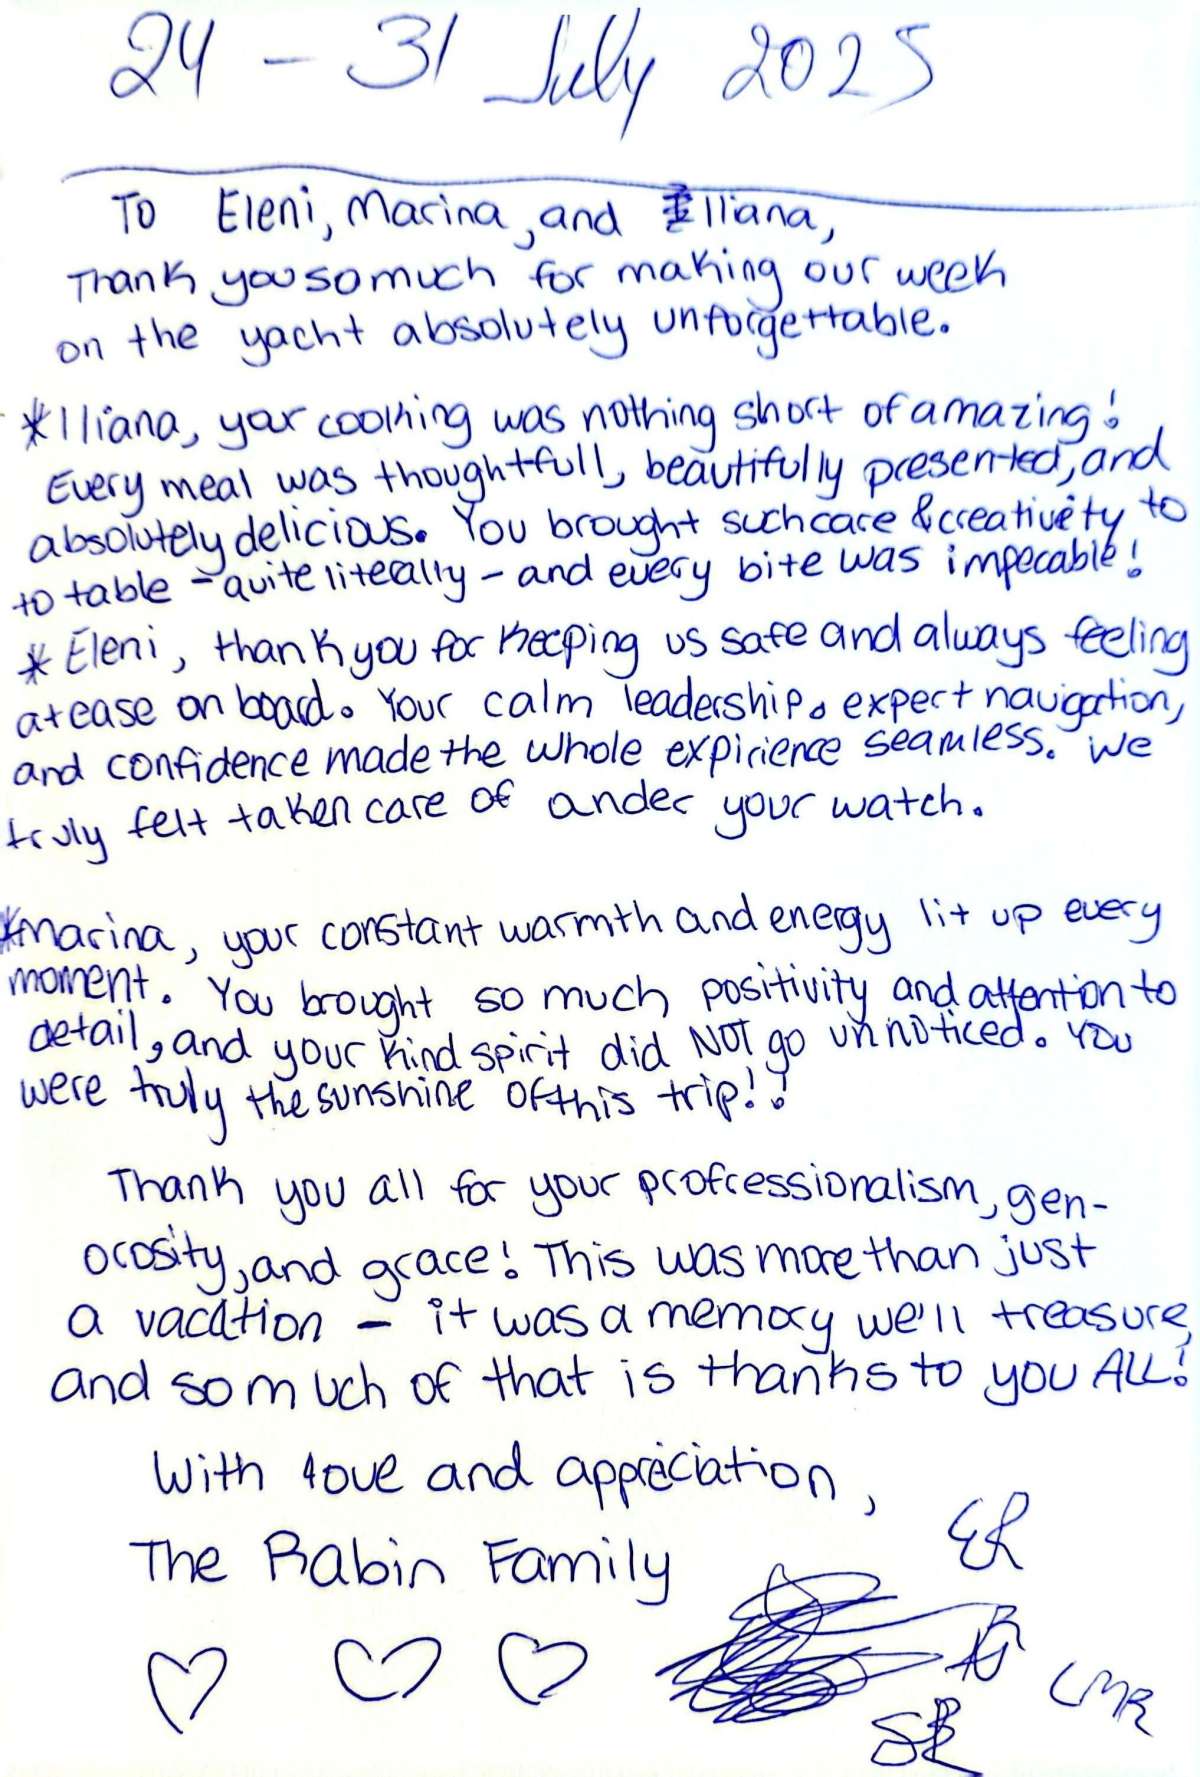 24 - 31 July 2025
To Eleni, Marina, and Iliana,
Thank you so much for making our week
on the yacht absolutely unforgettable.
*Iliana, your cooking was nothing short of amazing!
Every meal was thoughtfull, beautifully presented, and
absolutely delicious. You brought such care & creativity to
to table - quite literally - and every bite was impecable!
*Eleni, thank you for keeping us safe and always feeling
at ease on board. Your calm leadership, expert navigation,
and confidence made the whole expirience seamless. We
truly felt taken care of ander your watch.
*Marina, your constant warmth and energy lit up every
moment. You brought so much positivity and attention to
detail, and your kind spirit did NOT go unnoticed. You
were truly the sunshine of this trip!!
Thank you all for your profressionalism, gen-
orosity, and grace! This was more than just
a vacation - it was a memory we'll treasure,
and so much of that is thanks to you ALL!
With love and appreciation,
The Rabin Family
ER
LMR